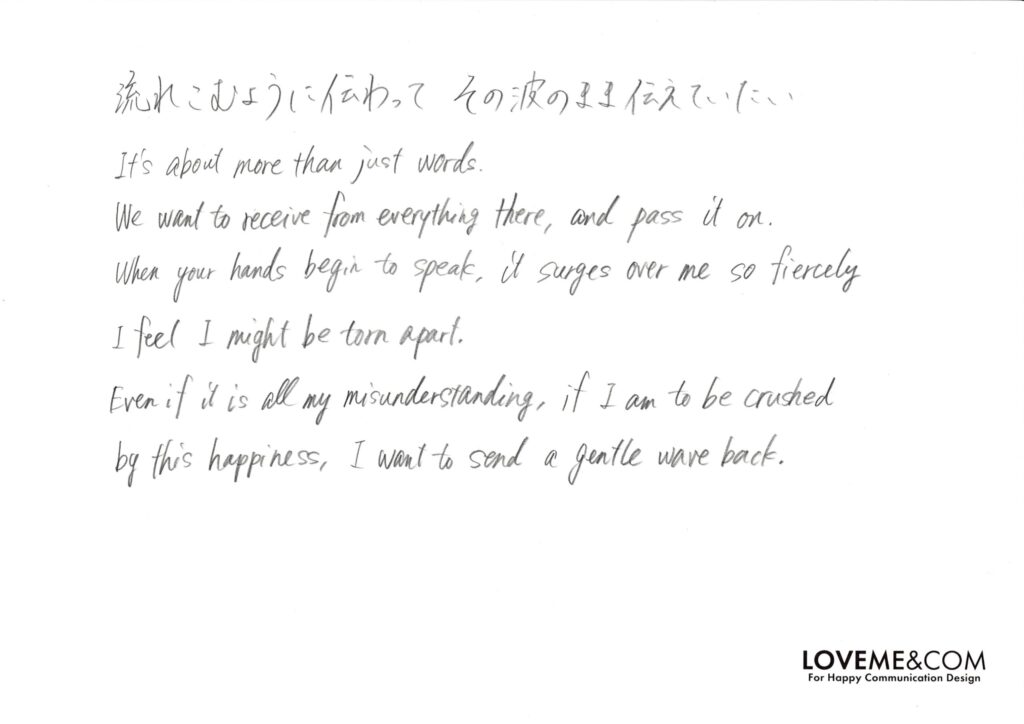 流れこむように伝わって その波のまま伝えていたい
It's about more than just words.
We want to receive from everything there, and pass it on.
When your hands begin to speak, it surges over me so fiercely
I feel I might be torn apart.
Even if it is all my misunderstanding, if I am to be crushed
by this happiness, I want to send a gentle wave back.
LOVEME&COM
For Happy Communication Design